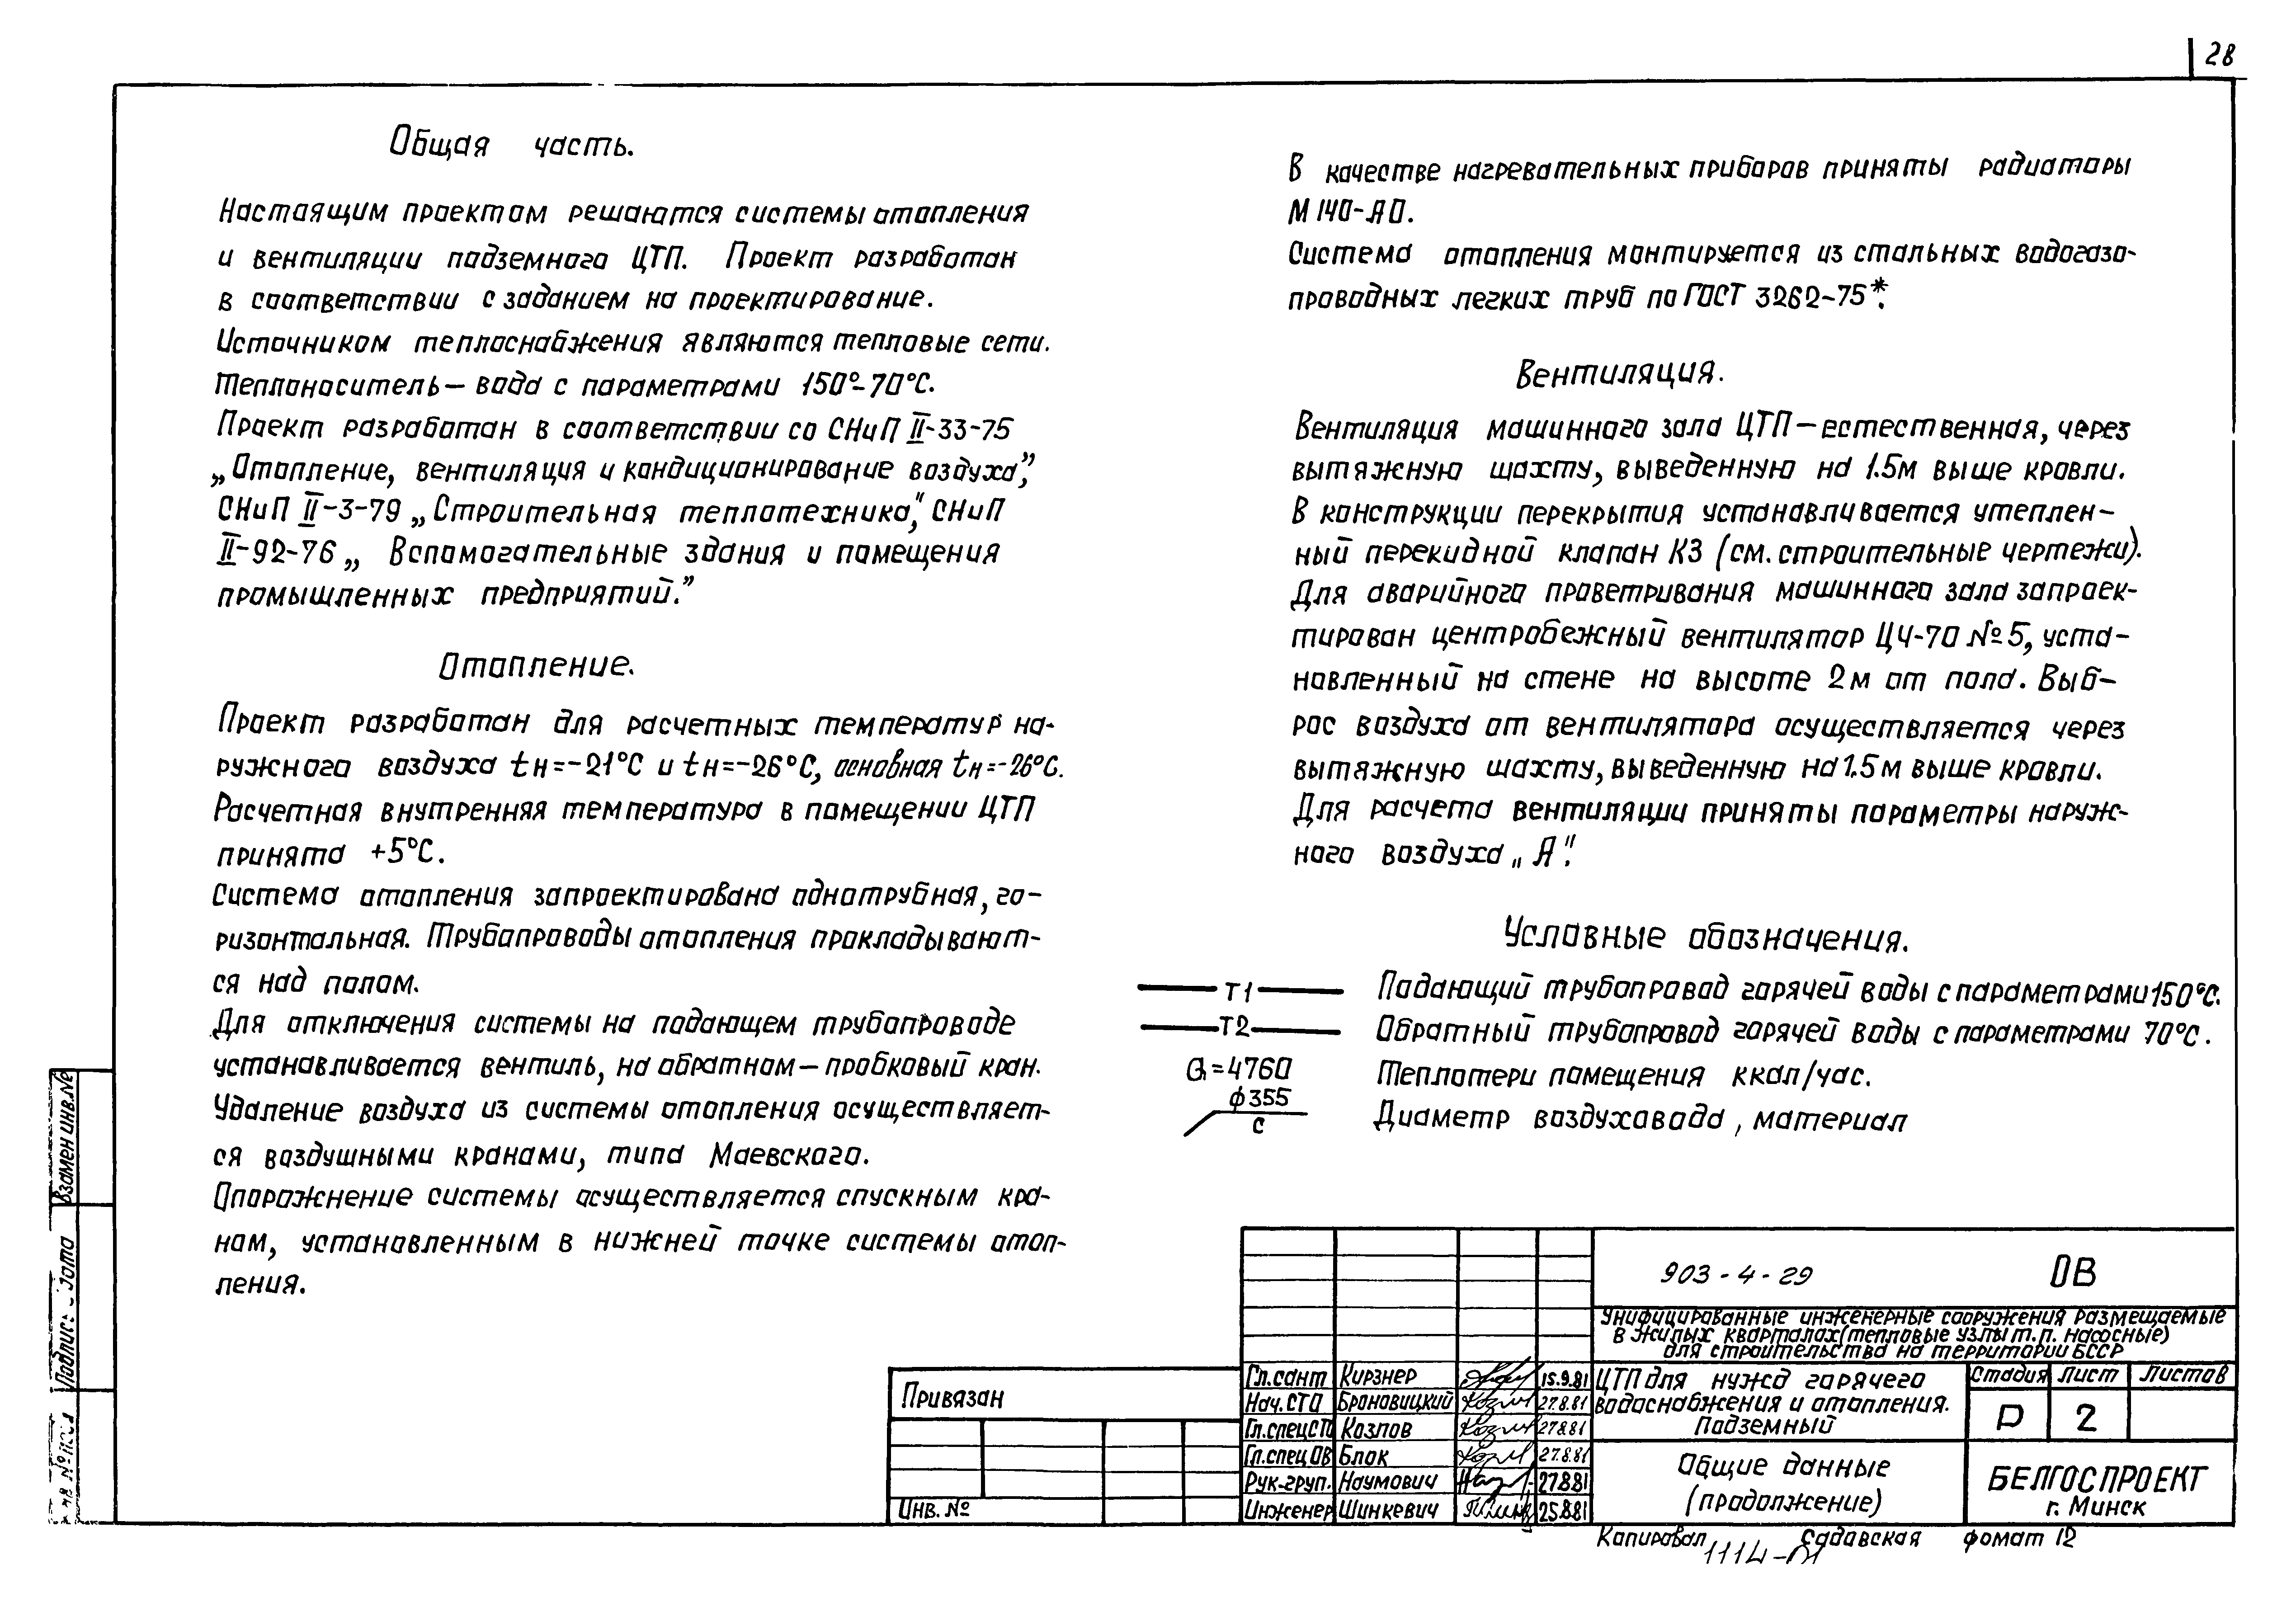 28
Общая часть.
Настоящим проектом решаются системы отопления
и вентиляции подземного ЦТП. Проект разработан
в соответствии с заданием на проектирование.
Источником теплоснабжения являются тепловые сети.
Теплоноситель — вода с параметрами 150°-70°С.
Проект разработан в соответствии со СНиП II-33-75
„Отопление, вентиляция и кондиционирование воздуха”,
СНиП II-3-79 „Строительная теплотехника," СНиП
II-92-76 „ Вспомогательные здания и помещения
промышленных предприятий.”
Отопление.
Проект разработан для расчетных температур на-
ружного воздуха tн=-21°С и tн=-26°С, основная tн=-26°С.
Расчетная внутренняя температура в помещении ЦТП
принята +5°С.
Система отопления запроектирована однотрубная, го-
ризонтальная. Трубопроводы отопления прокладывают-
ся над полом.
Для отключения системы на подающем трубопроводе
устанавливается вентиль, на обратном — пробковый кран.
Удаление воздуха из системы отопления осуществляет-
ся воздушными кранами, типа Маевского.
Опорожнение системы осуществляется спускным кра-
ном, установленным в нижней точке системы отоп-
ления.
В качестве нагревательных приборов приняты радиаторы
М140-АО.
Система отопления монтируется из стальных водогазо-
проводных легких труб по ГОСТ 3262-75*.
Вентиляция.
Вентиляция машинного зала ЦТП — естественная, через
вытяжную шахту, выведенную на 1.5м выше кровли.
В конструкции перекрытия устанавливается утеплен-
ный перекидной клапан КЗ (см. строительные чертежи).
Для аварийного проветривания машинного зала запроек-
тирован центробежный вентилятор Ц4-70 №5, уста-
новленный на стене на высоте 2м от пола. Выб-
рос воздуха от вентилятора осуществляется через
вытяжную шахту, выведенную на 1.5м выше кровли.
Для расчета вентиляции приняты параметры наруж-
ного воздуха „А".
Условные обозначения.
Т1 Подающий трубопровод горячей воды с параметрами 150°С.
Т2 Обратный трубопровод горячей воды с параметрами 70°С.
Q=4760 Теплотери помещения ккал/час.
ф355
с Диаметр воздуховода, материал
Взамен инв.№
Подпись Дата
903-4-29 ОВ
Унифицированные инженерные сооружения размещаемые
в жилых кварталах (тепловые узлы т.п. насосные)
для строительства на территории БССР
Гл.сант Кирзнер 15.9.81
Нач.СТО Броновицкий 27.8.81
Гл.спецСТО Козлов 27.8.81
Гл.спецОВ Блок 27.8.81
Рук-груп. Наумович 27.8.81
Инженер Шинкевич 25.8.81
ЦТП для нужд горячего
водоснабжения и отопления.
Подземный
Стадия Лист Листов
Р 2
Общие данные
(продолжение)
БЕЛГОСПРОЕКТ
г. Минск
Привязан
Инв. №
Копировал Садовская фомат 12